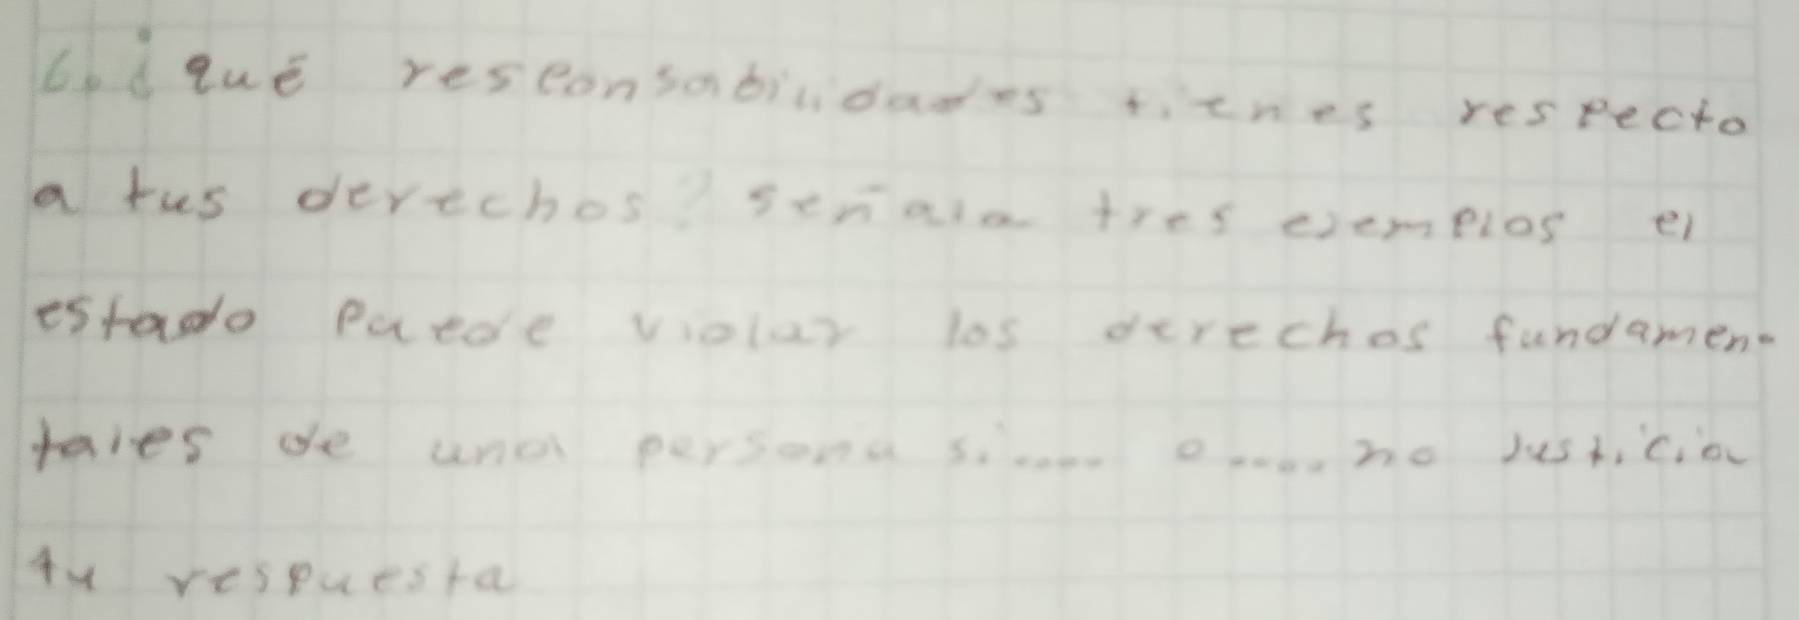 6. ¿ qué responsabilidades tienes respecto
a tus derechos? señala tres ejemplos el
estado puede violar los derechos fundamen-
tales de una persona si.... o .... no Justicia
tu respuesta